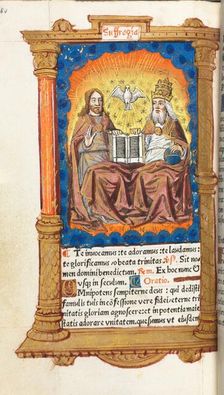 Suffragia
Te invocamus: te adoramus: te laudamus:
te glorificamus: o beata trinitas. Sit no
men domini benedictum, Rem. Ex hoc nunc
usq; in seculum. Oratio.
Mnipotens sempiterne deus: qui dedisti
famulis tuis in cōfessione vere fidei: eterne tri
nitatis gloriam agnoscere: et in potentia maie
statis adorare unitatem, quesumus ut eiusdem